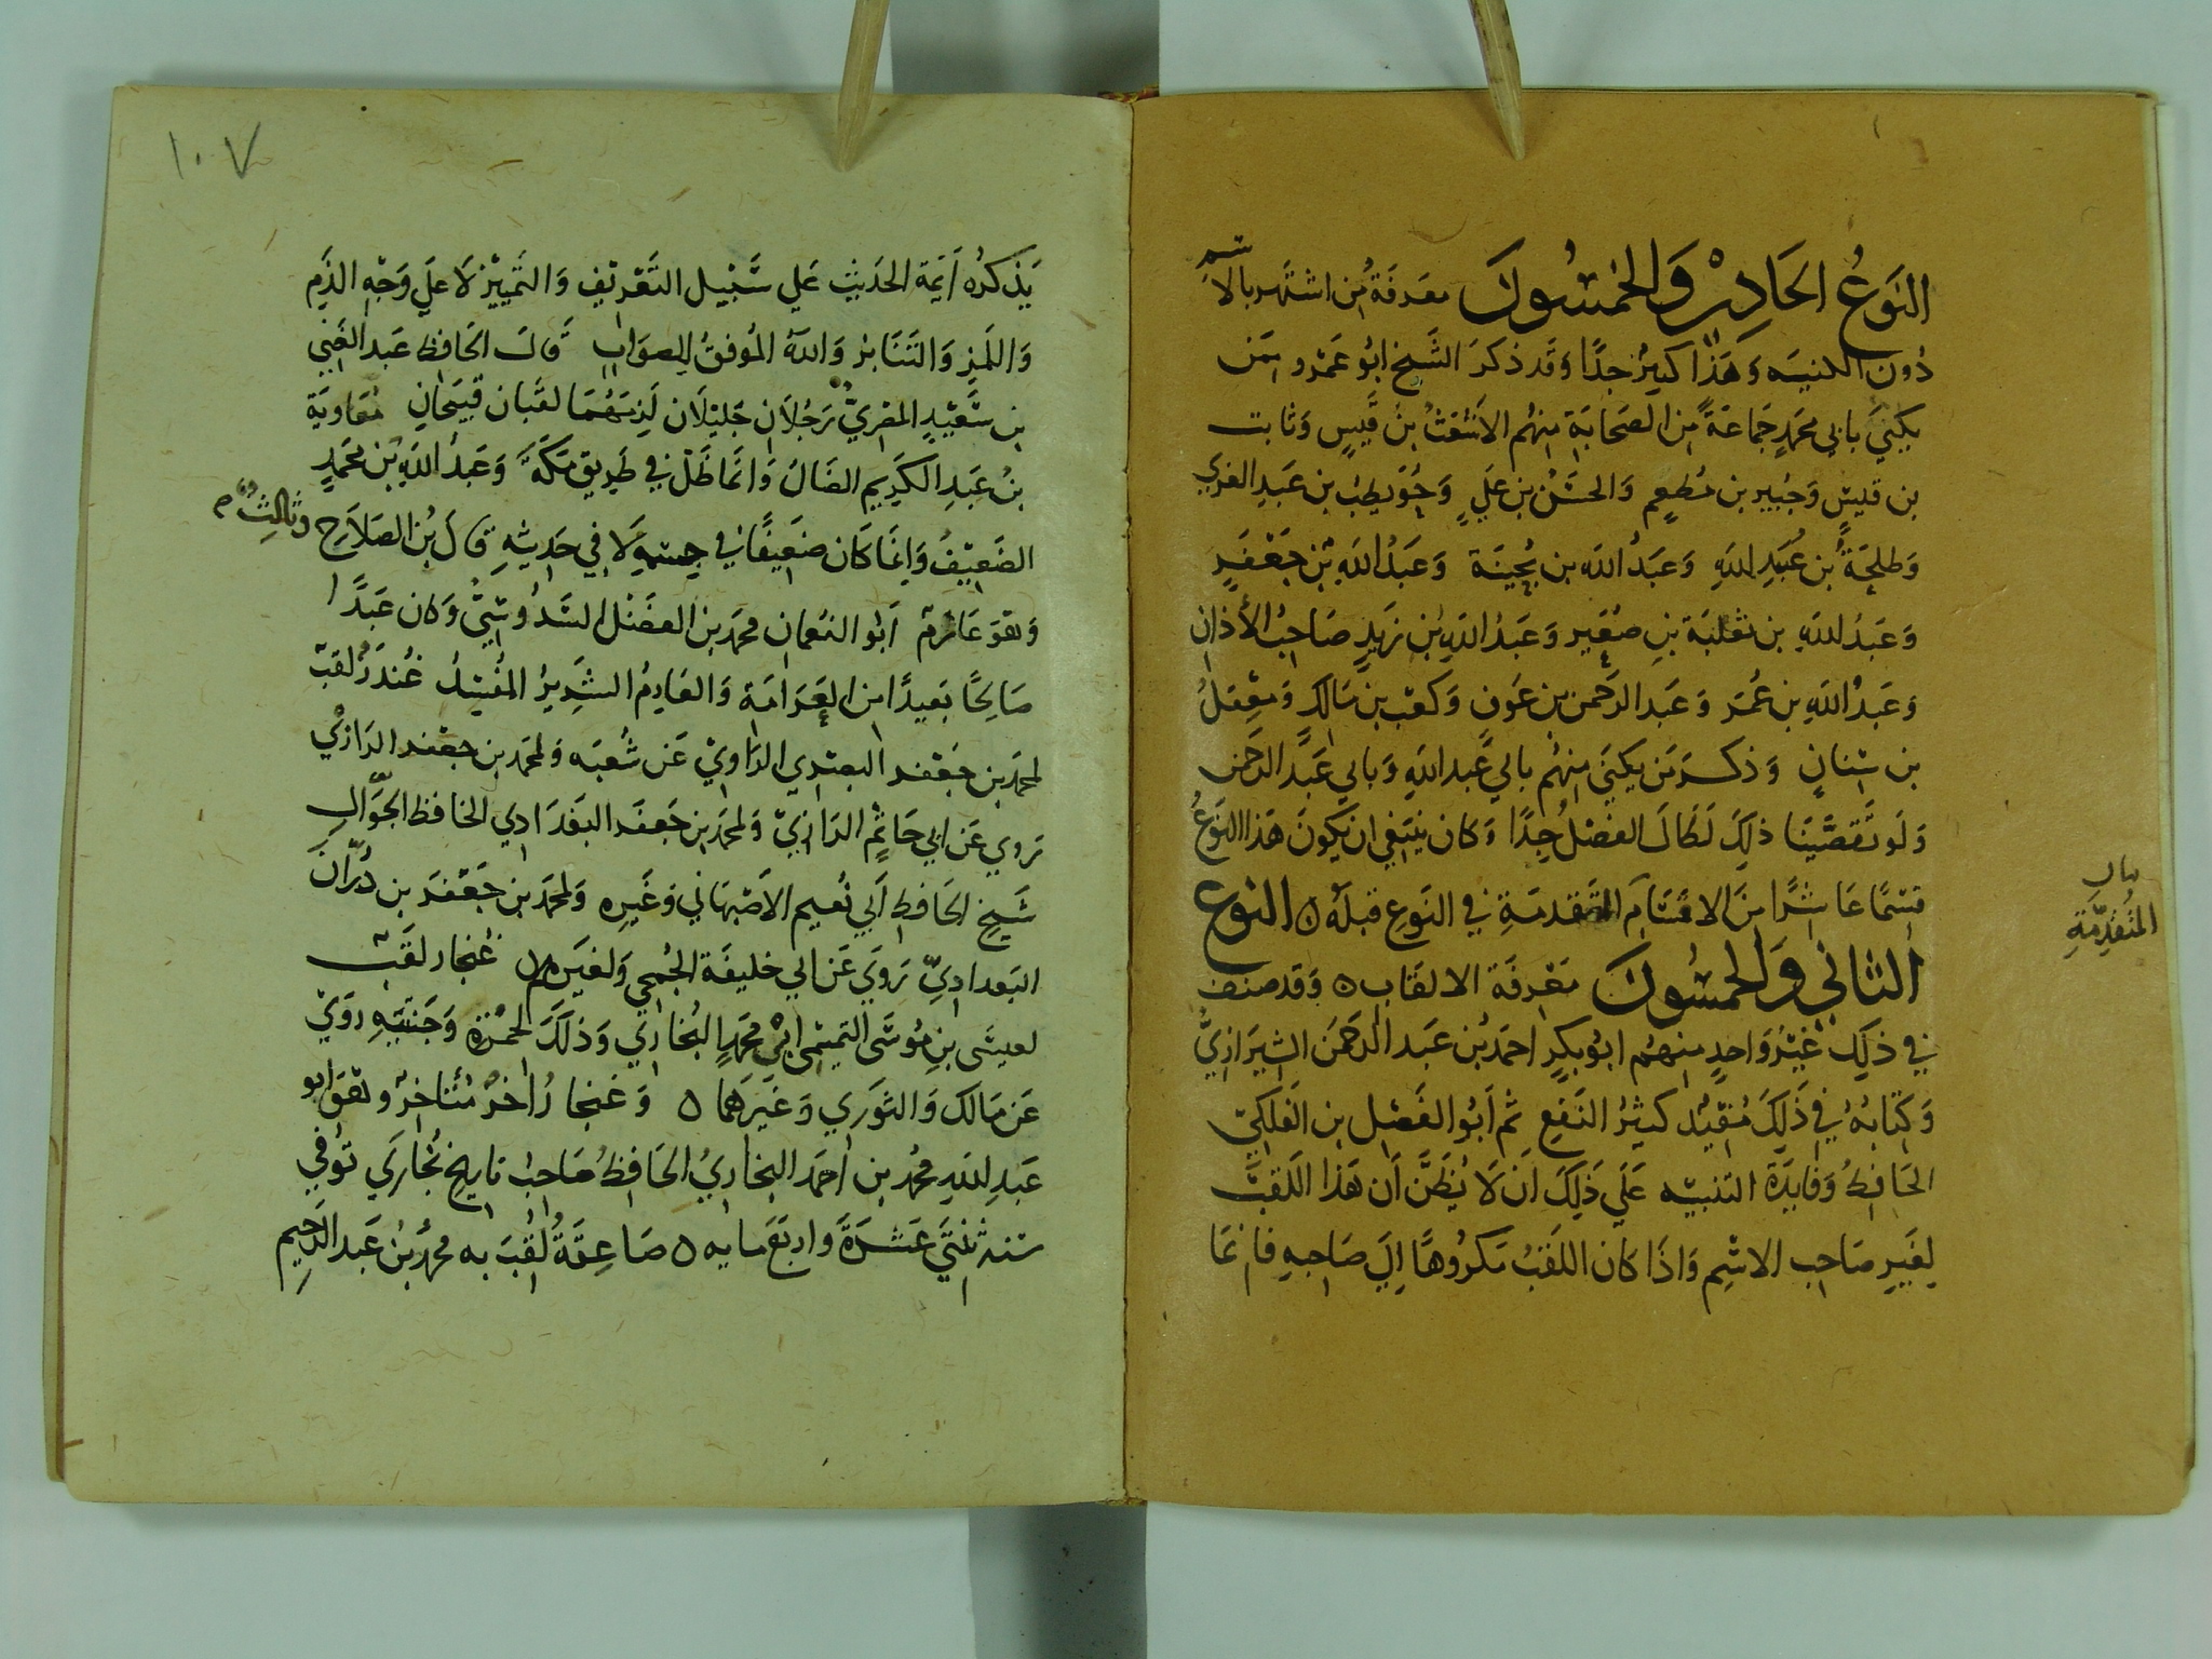 النَوعُ الحَادِيْ وَالخمسُونَ معَرفَةُ مُن اشتَهر بالاسم
دُون الكنيَه وَهَذَا كبيرٌ جدًا وَقَد ذكرَ الشَيخ ابُو عَمْرو ممَن
يكنيَ بابي محمَدٍ جَماعَةً مِن الصَحابَةِ مِنهُم الاَشعَثُ بنُ قَيسٍ وَثابت
بن قيسٍ وَجُبير بن مُطعِمٍ وَالحسَنُ بن عَليٍ وَحُوَيطِبُ بن عَبدِ العزي
وَطلحَةُ بن عُبَيدِ اللهِ وَعَبدُ الله بن بُحينَة وَعَبدُ اللهِ بن جَعفَرٍ
وَعَبدُ اللهِ بن ثعلبَة بنِ صعَيرٍ وَعَبدُ اللهِ بُن زَيدٍ صَاحبُ الأذان
وَعَبدُ اللهِ بن عُمَر وَعَبد الرَحمن بن عَوفٍ وَكعَب بن مَالكٍ وَمعِقلُ
بن سنانٍ وَذكرَ مَن يكنيَ مِنهُم بابي عَبد اللهِ وَبابي عَبد الرحَمن
وَلَو تَقصَّينَا ذلِكَ لَطَالَ الفصْلُ جدًا وَكان ينبَغي ان يَكونَ هَذا النَوعُ
قسمًا عَاشرًا مِنَ الاقسَامِ المتَقدمَةِ في النَوعِ قبلَهُ ه النوع
بيان
المُتَقدِّمَةِ
الثاني وَالخمسُونَ مَعْرفَة الالقَاب ه وَقد صنفَ
في ذلِكَ غَيْرُ وَاحدٍ مِنهُم ابُو بكرٍ احمَدُ بُن عَبد الرَحمَن الشِيرَازيُّ
وَكتابُهُ في ذَلِكَ مُفيدٌ كثيرُ النَفعِ ثم اَبُو الفَضل بن الفَلكيّ
الحَافظُ وَفايدَة التنبيه عَلَي ذَلِكَ اَن لَا يُظَنَّ اَن هَذا اللَقبَ
لِغَيرِ صَاحب الاسْمِ وَاذَا كان اللَقَبُ مَكرُوهًا اِلَي صَاحبهِ فانمَا
١٠٧
يَذكرُه اَيمَة الحَديثِ عَلي سَبيل التَعْريفِ وَالتَمييْز لاَ عَلي وَجْهِ الذَم
وَاللَمز وَالتَنَابز وَاللهُ المُوفقُ للِصوَابِ قَالَ الحَافِظ عَبد الغَني
بن سَعيدٍ المِصريّ رَجُلاَن جَليلَان لَزمَهُمَا لقبَان قَبيَحانِ مُعَاويَة
بنُ عَبدِ الكَريم الضَالُ وَانمَا ضَل في طَريق مَكةَ وَعَبدُ اللهِ بُن محَمدٍ
الضَعِيفُ وَاِنمَا كَان ضعَيفًا في جسمهِ لَا في حَديثهِ قالَ بُن الصَلاَحِ وثالثٌ
وَهوَ عَارمٌ اَبُو النعُمان محمَد بن الفَضْل السَدُوسيُّ وَكان عَبدًا
صَالحًا بَعيدًا من العَرَامَة وَالعَارمُ الشرِيرُ المُفسِدُ غُندَرٌ لقبٌ
لمحمَد بن جَعفر البصري الرَاويْ عَن شُعبَه وَلمحمَد بن جعفر الرَازيْ
رَوي عَن ابي حَاتمٍ الرَازيّ وَلمحمَد بن جَعفَر البَغدَادي الحافظ الجَوَّالِ
شَيخِ الحَافظِ اَبي نُعيم الاَصْبهَاني وَغَيرِه وَلمحمَد بن جَعفَر بن دُرَّان
البَغداديِّ رَوَي عَن ابي خليفَة الجُمحي وَلغَيرهِم غُنجار لقَبٌ
لعيسَى بنِ مُوسَى التميمي ابي محمَدٍ البُخاري وَذلَكَ لحمُرَةِ وَجنتَيهِ رَوَيْ
عَن مَالك وَالثوَري وَغَيَرهما ه وَغنجارُ اخرُ مُتأخرٌ وهُوَ ابو
عَبدِ اللهِ محمُد بن احمَد البخاريُ الحَافِظُ صَاحبُ تاريخ بُخارَي تُوُفي
سَنه ثِنتَي عَشرَةَ وَاربَعَمايه ه صَاعِقَةُ لُقبَ به محمَدُ بنُ عَبد الرَحِيم